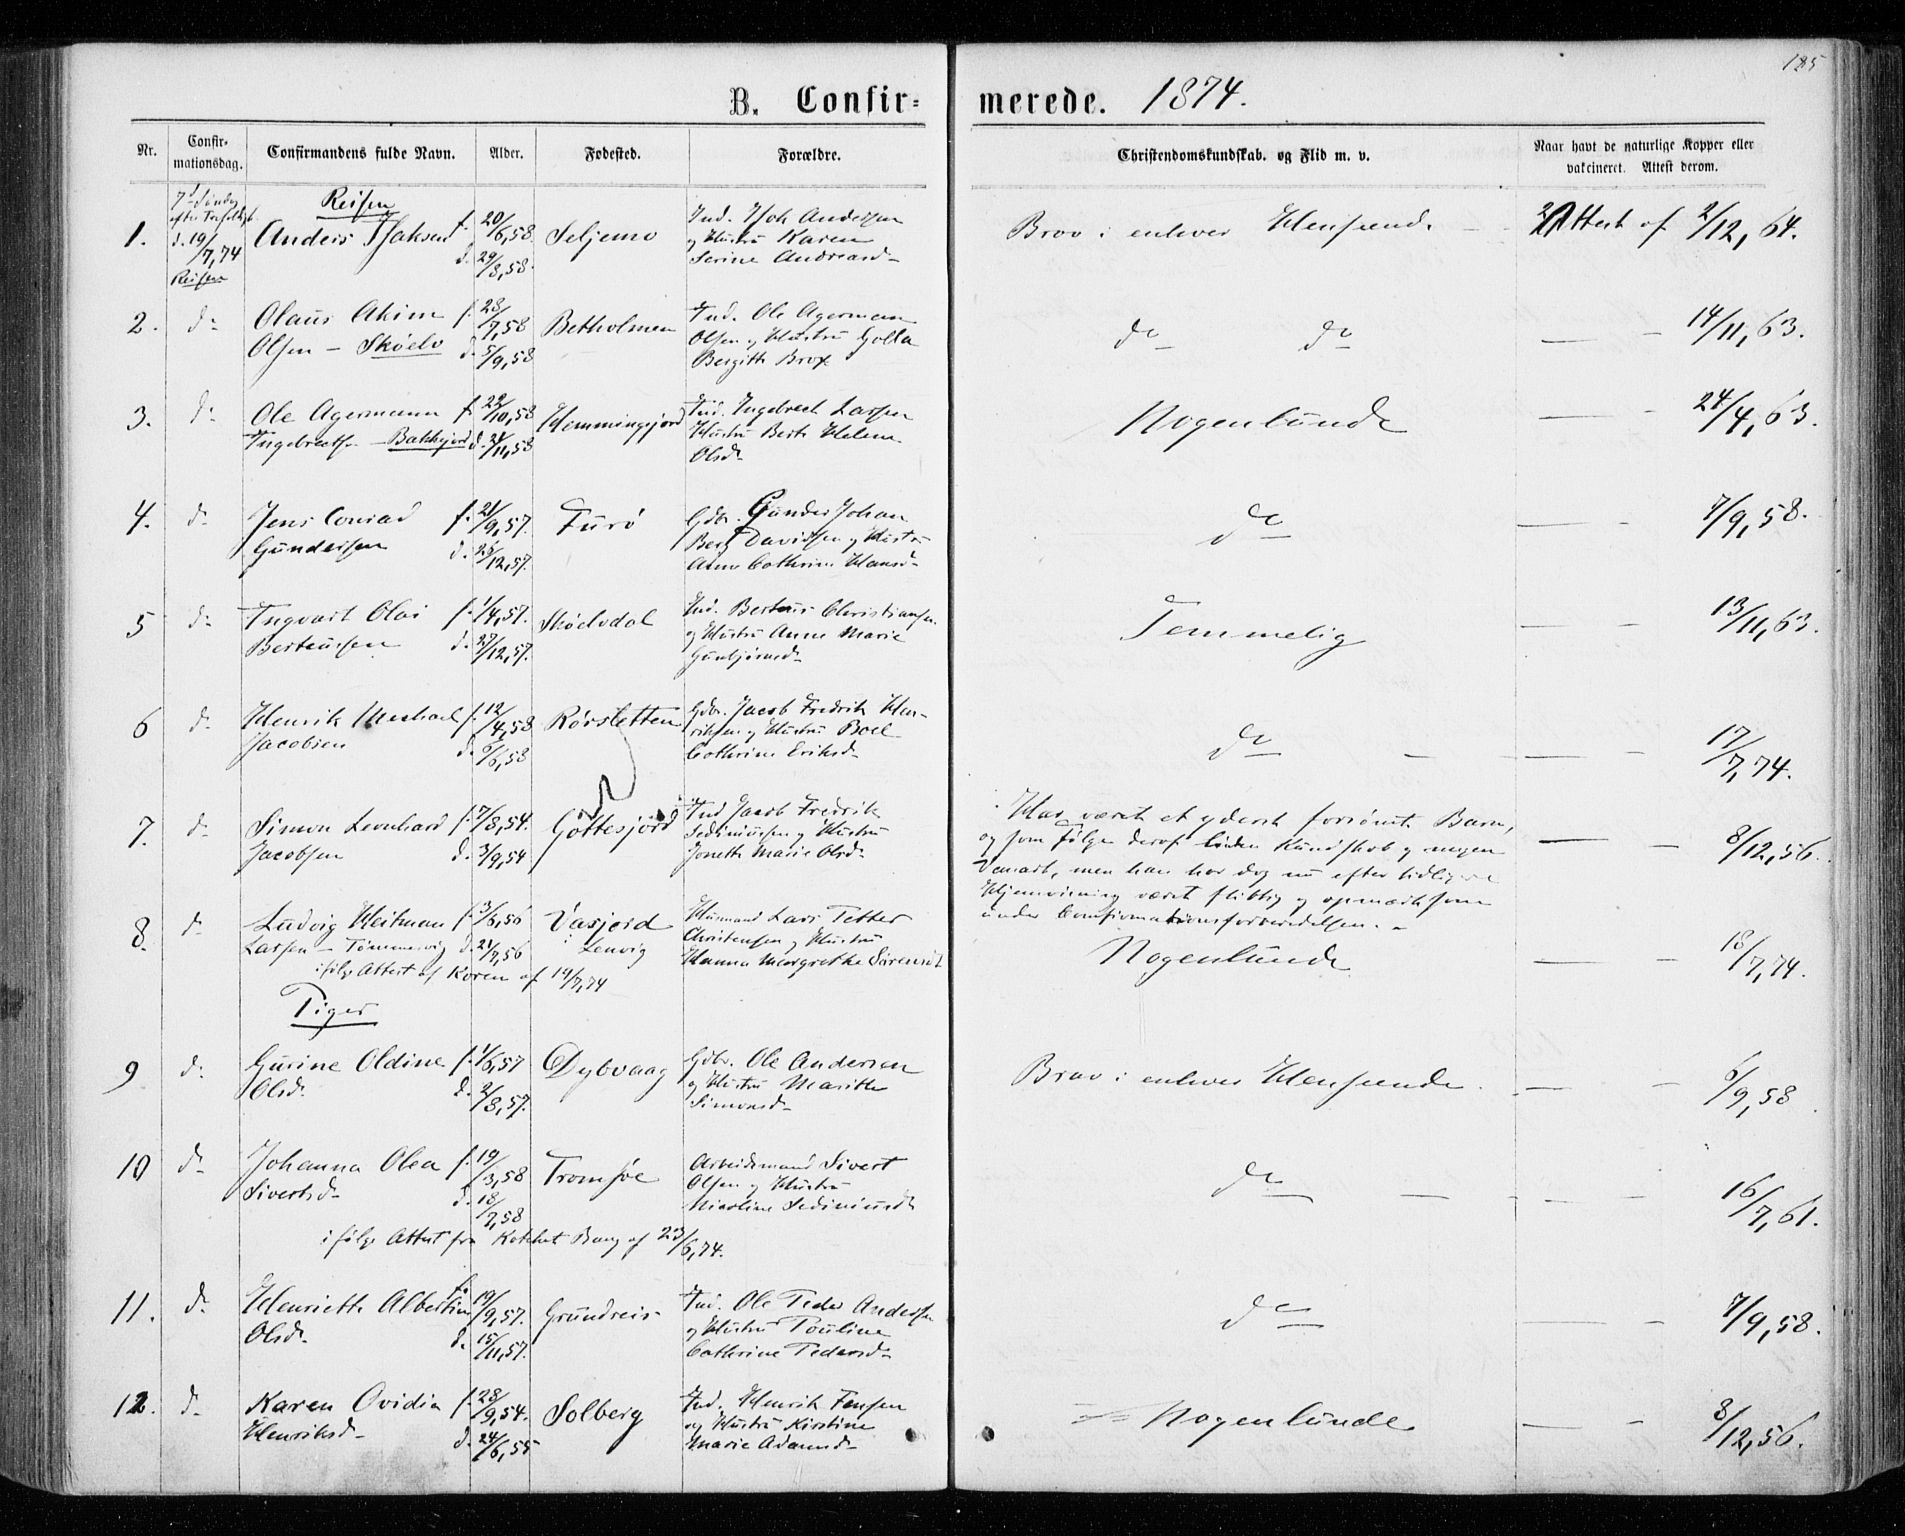 185
B. Confir-
merede. 1874.
Nr.
Confir-
mationsdag.
Confirmandens fulde Navn.
Alder.
Fødested.
Forældre.
Christendomskundskab. og Flid m. v.
Naar havt de naturlige Kopper eller
vakcineret. Attest derom.
7d Søndag
efter Trefoldigh.
d. 19/7,74
Reisen
Reisen
1. Anders Isaksen f. 20/6,58 Seljemo Ind. Isak Anderssen
d. 29/8,58. og Hustru Karen
Serine Andreasd.
Brav i enhver Henseende - Attest af 2/12, 64.
2. do Olaus Akim f. 28/7,58 Betholmen Ind. Ole Agerman
Olsen - Skøelv d. 5/9,58 Olsen og Hustru Golla
Bergith Brox
do do — - 14/11, 63.
3. do Ole Agermann f. 22/10,58 Hemmingsjord Ind. Ingebreth Larsen
Ingebretsen - Bakkejord d. 21/11,58 Hustru Berth Helena
Olsd.
Nogenlunde — - 24/4, 63.
4. do Jens Conrad f. 21/9,57. Furø Gdbr. Gunder Johan
Gundersen d. 25/12,57. Berg Davidsen og Hustru
Anne Cathrine Hansd.
do — - 7/9, 58.
5 do Ingvart Olai f. 1/4,57. Skøelvdal Ind. Berteus Christiansen
Berteussen d. 27/12,57. og Hustru Anne Marie
Gunbjørnsd.
Temmelig — - 13/11, 63.
6 do Henrik Meshael f. 12/4,58 Rørstetten Gdbr. Jacob Fredrik Hen-
Jacobsen d. 6/6,58 riksen og Hustru Boel
Cathrine Eriksd.
do - — - 17/7, 74.
7. do Simon Leonhard f. 7/8,54. Gottesjord Ind Jacob Fredrik
Jacobsen d. 3/9,54 Sediniussen og Hustru
Joneth Marie Olsd.
Har været et yderst forsømt Barn,
og som Følge deraf liden Kundskab og megen
Vanart, men han har dog nu efter tidligere
Hjemvisning været flittig og opmærksom
under Confirmationsforberedelsen. -
— - 8/12, 56.
8. do Ludvig Heitman f. 3/6,56 Vasjord Husmand Lars Petter
Larsen - Tømmervig d. 21/7,56 i Lenvig Christensen og Hustru
Hanna Margrethe Sørensd.
ifølge Attest af Koren af 14/7,74
Nogenlunde — - 18/7, 74.
Piger
9 do Gurine Oldine f. 1/6,57 Dybvaag Gdbr. Ole Andersen
Olsd. d. 2/8,57. og Hustru Marithe
Simonsd.
Brav i enhver Henseende. — - 6/9, 58
10 do Johanna Olea f. 19/3,58 Tromsøe Arbeidsmand Sivert
Sivertsd. d. 18/7,58 Olsen og Hustru
Nicoline Sediniusd.
ifølge Attest fra Bang af 23/6,74.
do — - - 16/7, 61.
11. do Henriette Albertine f. 19/9,57. Grundreis Ind. Ole Peder Andersen
Olsd. d. 15/11,57. og Hustru Pouline
Cathrine Pedersd.
do — - 7/9, 58.
12. do Karen Ovidia f. 28/9,54. Solberg Ind. Henrik Jensen
Henriksd. d. 24/6,55 og Hustru Kirstine
Marie Adamsd.
Nogenlunde — - 8/12, 56.